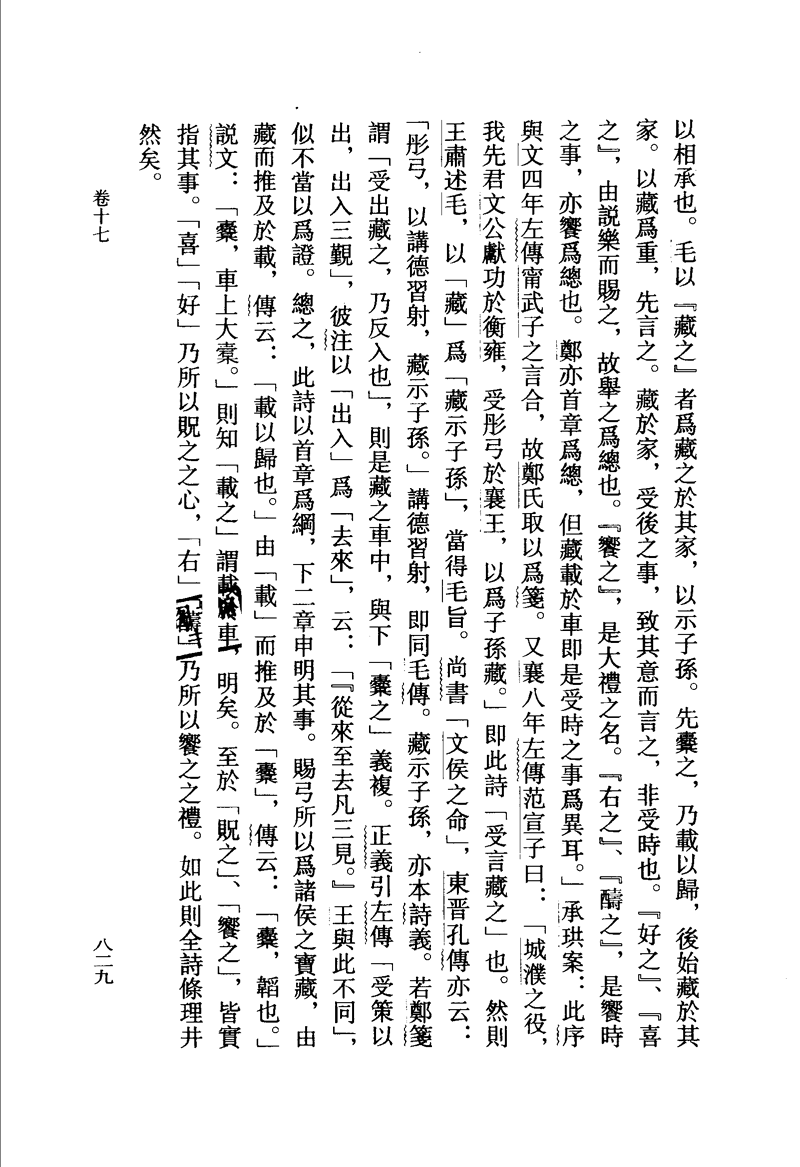 以相承也。毛以『藏之』者爲藏之於其家，以示子孫。先櫜之，乃載以歸，後始藏於其
家。以藏爲重，先言之。藏於家，受後之事，致其意而言之，非受時也。『好之』、『喜
之』，由説樂而賜之，故舉之爲總也。『饗之』，是大禮之名。『右之』、『醻之』，是饗時
之事，亦饗爲總也。鄭亦首章爲總，但藏載於車即是受時之事爲異耳。」承珙案：此序
與文四年左傳甯武子之言合，故鄭氏取以爲箋。又襄八年左傳范宣子曰：「城濮之役，
我先君文公獻功於衡雍，受彤弓於襄王，以爲子孫藏。」即此詩「受言藏之」也。然則
王肅述毛，以「藏」爲「藏示子孫」，當得毛旨。尚書「文侯之命」，東晋孔傳亦云：
「彤弓，以講德習射，藏示子孫。」講德習射，即同毛傳。藏示子孫，亦本詩義。若鄭箋
謂「受出藏之，乃反入也」，則是藏之車中，與下「櫜之」義複。正義引左傳「受策以
出，出入三覲」，彼注以「出入」爲「去來」，云：「『從來至去凡三見。』王與此不同」，
似不當以爲證。總之，此詩以首章爲綱，下二章申明其事。賜弓所以爲諸侯之寶藏，由
藏而推及於載，傳云：「載以歸也。」由「載」而推及於「櫜」，傳云：「櫜，韜也。」
説文：「櫜，車上大橐。」則知「載之」謂載於車，明矣。至於「貺之」、「饗之」，皆實
指其事。「喜」「好」乃所以貺之之心，「右」「醻」乃所以饗之之禮。如此則全詩條理井
然矣。
卷十七
八二九